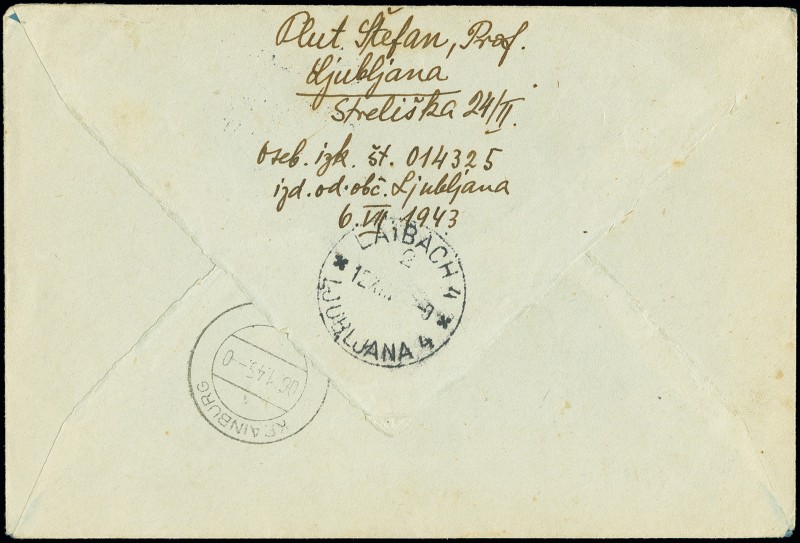 Plut Štefan, Prof.
Ljubljana
Streliška 24/II.
Oseb. izk. št. 014325
izd. od. obč. Ljubljana
6. VII. 1943
LAIBACH 4
2
LJUBLJANA 4
KRAINBURG